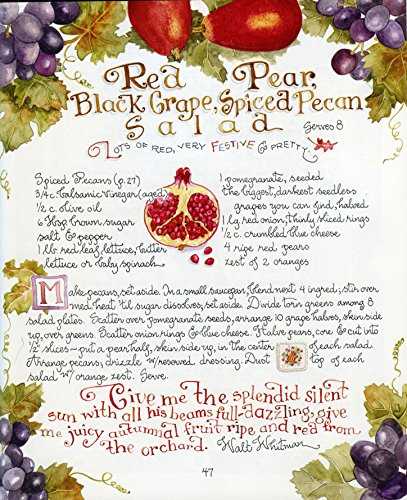 Red Pear,
Black Grape, Spiced Pecan
Salad
Serves 8
LOTS OF RED, VERY FESTIVE & PRETTY
Spiced Pecans (p.27)
3/4 c. balsamic vinegar (aged)
1/2 c. olive oil
6 Tbsp. brown sugar
salt & pepper
1 lb. red leaf lettuce, butter
lettuce or baby spinach
1 pomegranate, seeded
the biggest, darkest seedless
grapes you can find, halved
1 lg. red onion, thinly sliced rings
1/2 c. crumbled blue cheese
4 ripe red pears
zest of 2 oranges
Make pecans, set aside. In a small saucepan, blend next 4 ingred., stir over
med. heat 'til sugar dissolves, set aside. Divide torn greens among 8
salad plates. Scatter over pomegranate seeds, arrange 10 grape halves, skin side
up, over greens. Scatter onion rings & blue cheese. Halve pears, core & cut into
1/2" slices – put a pear half, skin side up, in the center of each salad.
Arrange pecans, drizzle w/ reserved dressing. Dust top of each
salad w/ orange zest. Serve.
Give me the splendid silent
sun with all his beams full-dazzling; give
me juicy autumnal fruit ripe and red from
the orchard. Walt Whitman
47